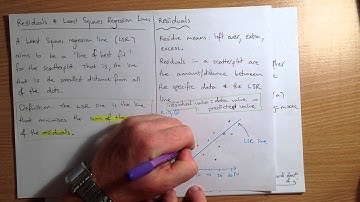 Residuals & Least Squares Regression Lines
A Least Squares regression line (LSR)
aims to be a 'line of best fit' for
the scatterplot. That is, the line
that is the smallest distance from all
of the dots.
Definition: the LSR line is the line
that minimises the sum of the
of the residuals.
Residuals
Residue means: left over, extra,
excess.
Residuals in a scatterplot are
the amount/distance between
the specific data & the LSR
line.
Residual value = data value -
predicted value
e.g. ①
LSR line